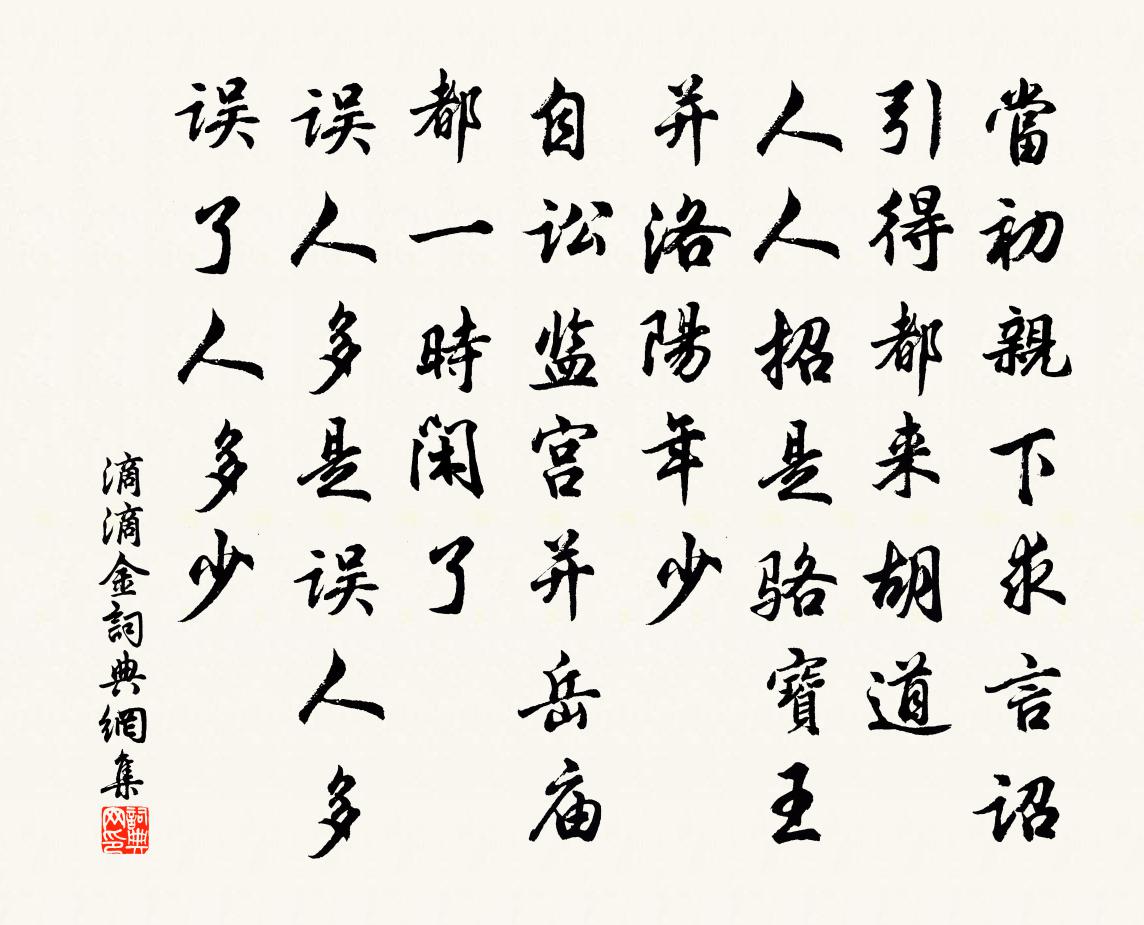 當初親下求言詔
引得都来胡道
人人招是骆寶王
并洛陽年少
自讼监宫并岳庙
都一時閑了
误人多是误人多
误了人多少
滴滴金詞典網集
詞典网印